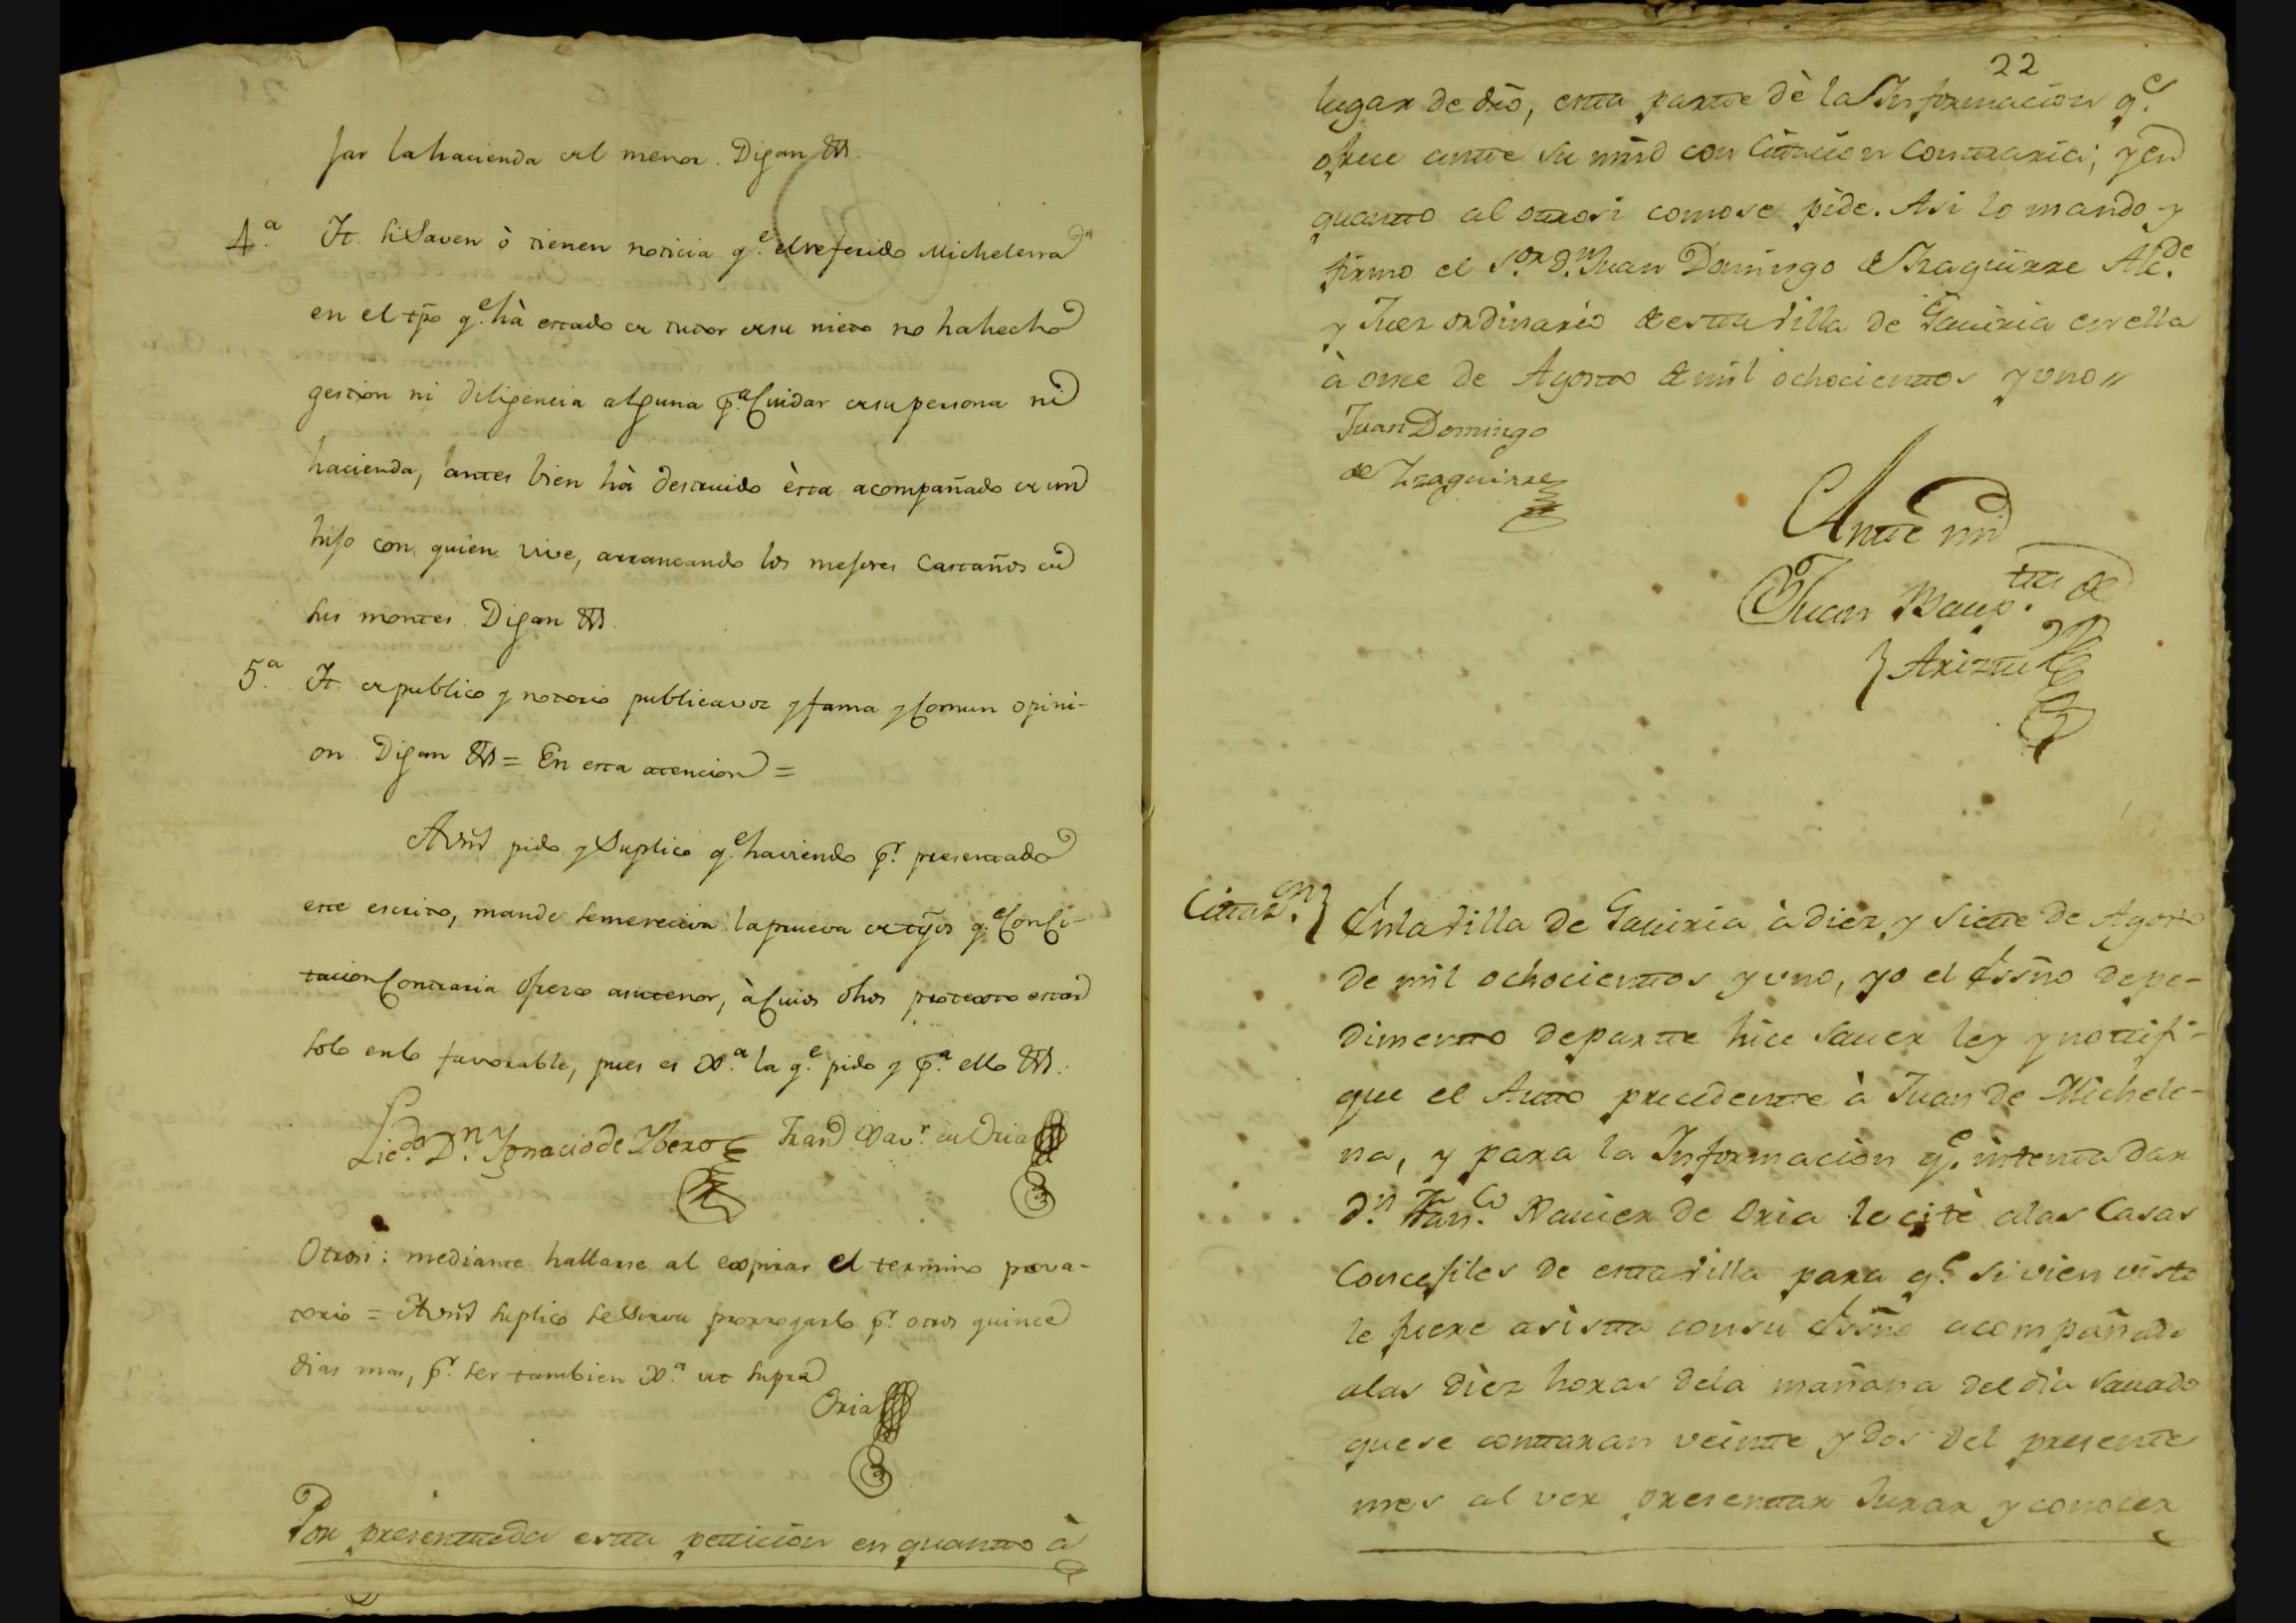 sar la hacienda del menor. Digan &.
4.ª It. si saven ò tienen noticia q.e el referido Michelena
en el tpo q.e hà estado de tutor de su nieto no ha hecho
gestion ni diligencia alguna p.a Cuidar de su persona ni
hacienda, antes bien hà destruido èsta acompañado de un
hijo con quien vive, arrancando los mejores Castaños en
sus montes. Digan &.
5.ª It. de publico y notorio publica voz y fama y Comun opini-
on. Digan & = En esta atencion =
A Vmd pido y Suplico q.e haviendo p.r presentado
este escrito, mande se me reciva la prueva de tgos q.e Con Ci-
tacion Contraria ofrezco a su tenor, à Cuios dhos protexto estar
solo en lo favorable, pues es Xª la q.e pido y p.a ello &.
Lic.do D.n Ygnacio de Ybero Fran Xav.r de Oria
Otrosi: mediante hallarse al expirar el termino prova-
torio = A Vmd suplico se Sirva prorrogarlo p.r otros quince
dias mas, p.r ser tambien Xª ut supra
Oria
Por presentada esta petticion en quanto à
22
lugar de dro, esta parte dè la Informacion q.e
ofrece ante su mrd con Cittacion Contraria; y en
quanto al otrosi como se pide. Asi lo mando y
firmo el S.or D.n Juan Domingo de Yzaguirre Alc.de
y Juez ordinario de esta Villa de Gaviria en ella
à once de Agosto de mil ochocientos y uno //
Juan Domingo
de Yzaguirre
Ante mi
Juan Baup.tta de
Ariztti
Cittaz.on } En la Villa de Gaviria à diez y siette de Agosto
de mil ochocientos y uno, yo el Essno de pe-
dimento de parte hice saver ley y nottifi-
que el Autto precedente à Juan de Michele-
na, y para la Informacion q.e intenta dar
D.n Fran.co Xavier de Oria le citè a las Casas
Concejiles de esta Villa para q.e si vien visto
le fuere asista con su Essno acompañado
a las dièz horas de la mañana del dia savado
que se contaran veinte y dos del presente
mes al ver presentar Jurar y conocer